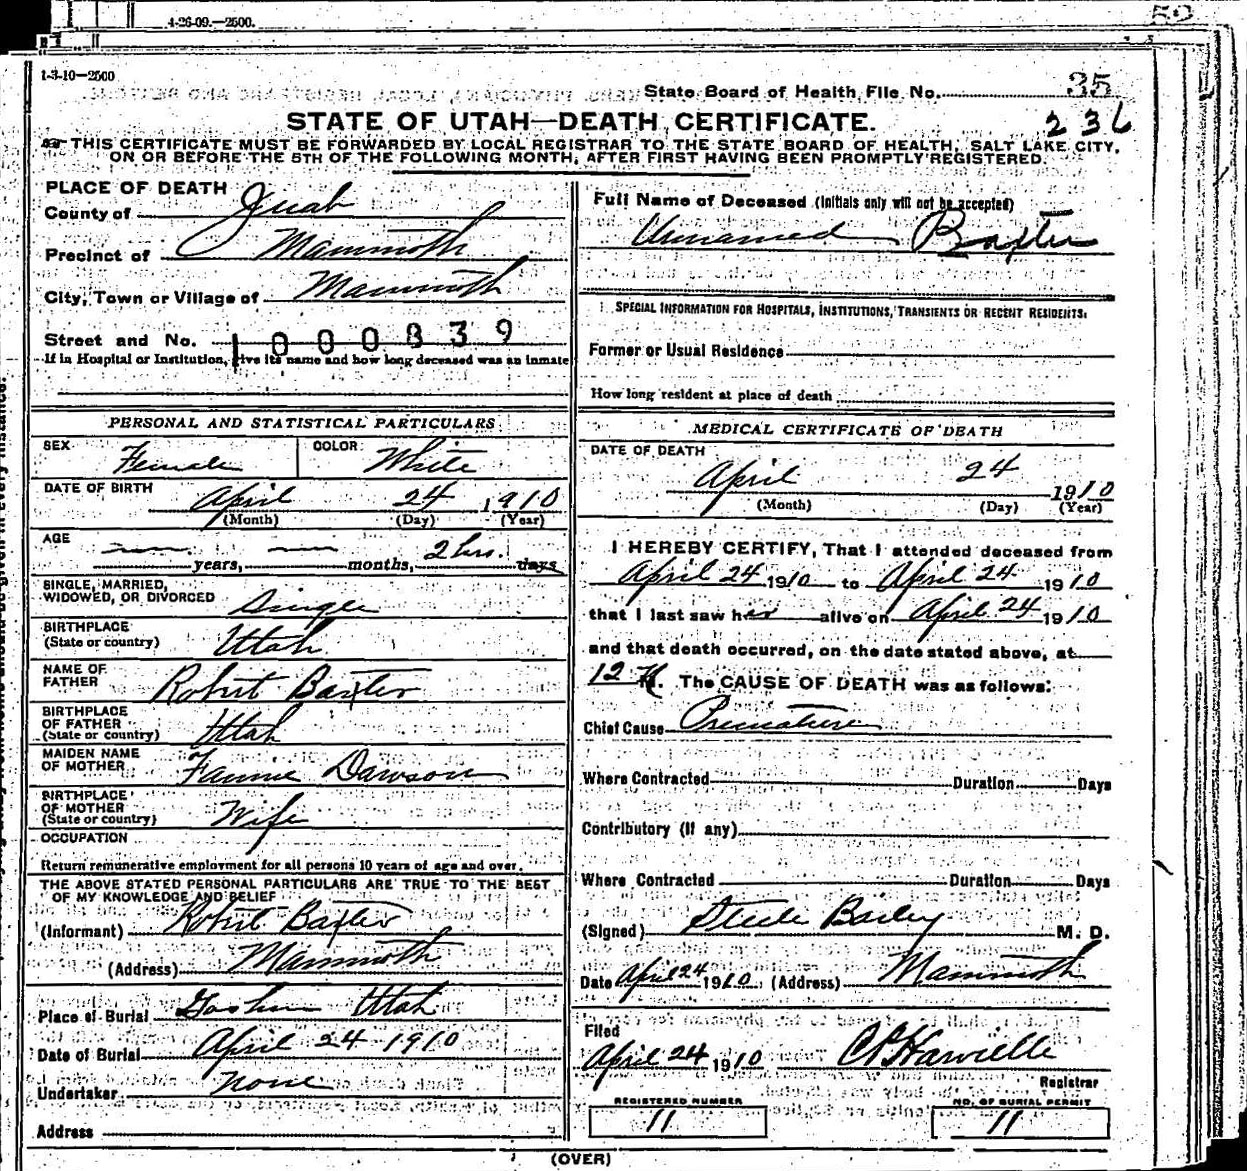 4-26-09.—2500.
1-3-10—2500
State Board of Health File No. 35
STATE OF UTAH—DEATH CERTIFICATE.
236
THIS CERTIFICATE MUST BE FORWARDED BY LOCAL REGISTRAR TO THE STATE BOARD OF HEALTH, SALT LAKE CITY,
ON OR BEFORE THE 5TH OF THE FOLLOWING MONTH, AFTER FIRST HAVING BEEN PROMPTLY REGISTERED.
PLACE OF DEATH
County of Juab
Precinct of Mammoth
City, Town or Village of Mammoth
Street and No. 1000839
If in Hospital or Institution, give its name and how long deceased was an inmate
Full Name of Deceased (Initials only will not be accepted)
Unnamed Baxter
SPECIAL INFORMATION FOR HOSPITALS, INSTITUTIONS, TRANSIENTS OR RECENT RESIDENTS.
Former or Usual Residence
How long resident at place of death
PERSONAL AND STATISTICAL PARTICULARS
SEX Female COLOR White
DATE OF BIRTH April 24 1910
(Month) (Day) (Year)
AGE
years, months, 2 hrs. days
SINGLE, MARRIED,
WIDOWED, OR DIVORCED Single
BIRTHPLACE
(State or country) Utah
NAME OF
FATHER Robert Baxter
BIRTHPLACE
OF FATHER
(State or country) Utah
MAIDEN NAME
OF MOTHER Fannie Dawson
BIRTHPLACE
OF MOTHER
(State or country) Wife
OCCUPATION
Return remunerative employment for all persons 10 years of age and over.
THE ABOVE STATED PERSONAL PARTICULARS ARE TRUE TO THE BEST
OF MY KNOWLEDGE AND BELIEF
(Informant) Robert Baxter
(Address) Mammoth
Place of Burial Goshen Utah
Date of Burial April 24 1910
Undertaker None
Address
MEDICAL CERTIFICATE OF DEATH
DATE OF DEATH
April 24 1910
(Month) (Day) (Year)
I HEREBY CERTIFY, That I attended deceased from
April 24 1910 to April 24 1910
that I last saw her alive on April 24 1910
and that death occurred, on the date stated above, at
12 M. The CAUSE OF DEATH was as follows:
Chief Cause Premature
Where Contracted Duration Days
Contributory (If any)
Where Contracted Duration Days
(Signed) Steele Bailey M. D.
Date April 24 1910 (Address) Mammoth
Filed
April 24 1910
Registrar
REGISTERED NUMBER
11
NO. OF BURIAL PERMIT
11
(OVER)